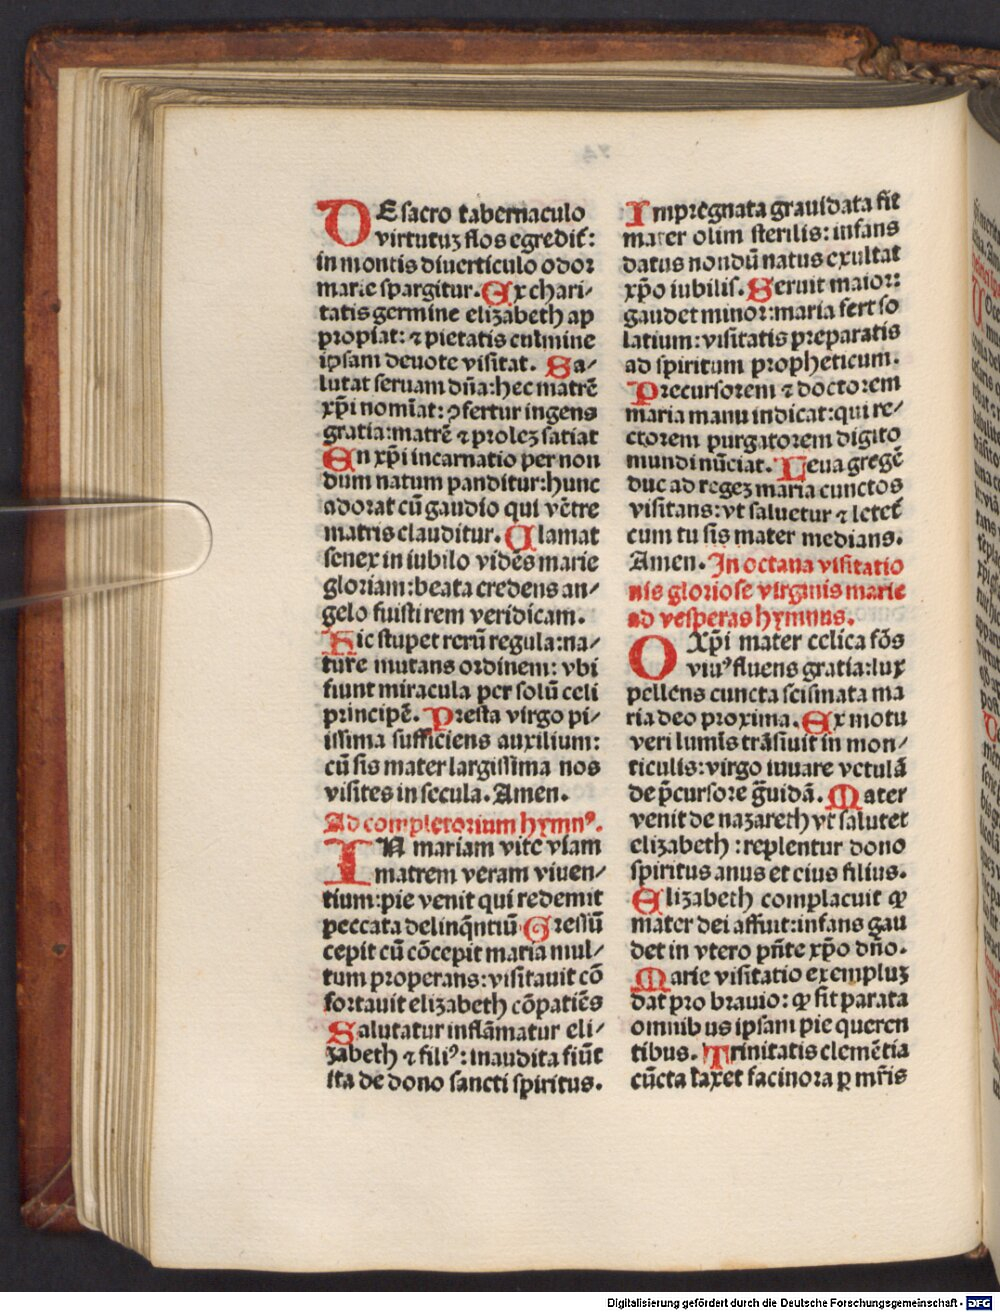 DE sacro tabernaculo
virtutuꝫ flos egredit̄:
in montis diuerticulo odor
marie spargitur. Ex chari/
tatis germine elizabeth ap
propiat: ⁊ pietatis culmine
ipsam deuote visitat. Sa/
lutat seruam dn̄a: hec matrē
xp̄i nomīat: ꝯfertur ingens
gratia: matrē ⁊ proleꝫ satiat
En xp̄i incarnatio per non
dum natum panditur: hunc
adorat cū gaudio qui vētre
matris clauditur. Clamat
senex in iubilo vidēs marie
gloriam: beata credens an/
gelo fuisti rem veridicam.
Hic stupet rerū regula: na/
ture mutans ordinem: vbi
fiunt miracula per solū celi
principē. Presta virgo pi/
issima sufficiens auxilium:
cū sis mater largissima nos
visites in secula. Amen.
Ad completorium hymnꝰ.
IN mariam vite viam
matrem veram viuen/
tium: pie venit qui redemit
peccata delinq̄ntiū Gressū
cepit cū cōcepit maria mul/
tum properans: visitauit cō
fortauit elizabeth cōpatiēs
Salutatur inflāmatur eli/
zabeth ⁊ filiꝰ: inaudita fiūt
ita de dono sancti spiritus.
Impregnata grauidata fit
mater olim sterilis: infans
datus nondū natus exultat
xp̄o iubilis. Seruit maior:
gaudet minor: maria fert so
latium: visitatis preparatis
ad spiritum propheticum.
Precursorem ⁊ doctorem
maria manu indicat: qui re/
ctorem purgatorem digito
mundi nūciat. Leua gregē
duc ad regeꝫ maria cunctos
visitans: vt saluetur ⁊ letet̄
cum tu sis mater medians.
Amen. In octaua visitatio
nis gloriose virginis marie
ad vesperas hymnus.
O Xp̄i mater celica fōs
viuꝰ fluens gratia: lux
pellens cuncta scismata ma
ria deo proxima. Ex motu
veri lumīs trāsiuit in mon/
ticulis: virgo iuuare vetulā
de p̄cursore ḡuidā. Mater
venit de nazareth vt salutet
elizabeth: replentur dono
spiritus anus et eius filius.
Elizabeth complacuit ꝙ
mater dei affuit: infans gau
det in vtero pn̄te xp̄o dn̄o.
Marie visitatio exempluꝫ
dat pro brauio: ꝙ fit parata
omnibus ipsam pie queren
tibus. Trinitatis clemētia
cūcta laxet facinora ꝑ mr̄is
Digitalisierung gefördert durch die Deutsche Forschungsgemeinschaft - DFG